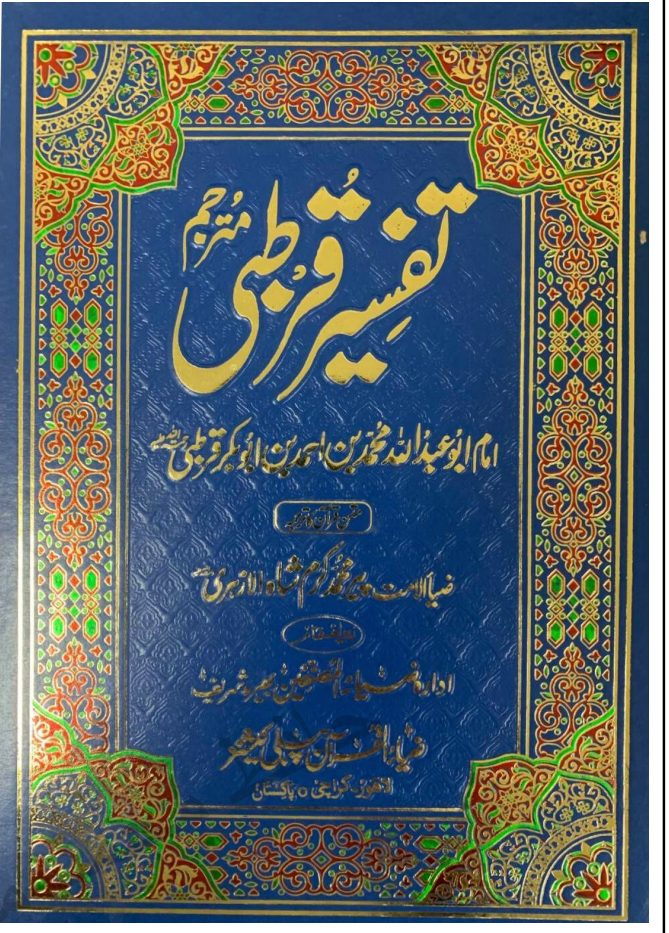 تفسیر قُرطبی مُترجم
امام ابو عبدُاللہ محمد بن احمد بن ابوبکر قرطبی رحمۃ اللہ علیہ
متن قرآن کا ترجمہ
ضیاءالامت پیر محمد کرم شاہ الازہری
ادارہ ضیاء المصنفین بھیرہ شریف
ضیاء القرآن پبلی کیشنز
لاہور۔ کراچی ○ پاکستان